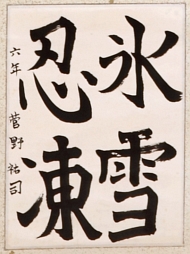 氷雪
忍凍
六年 菅野祐司